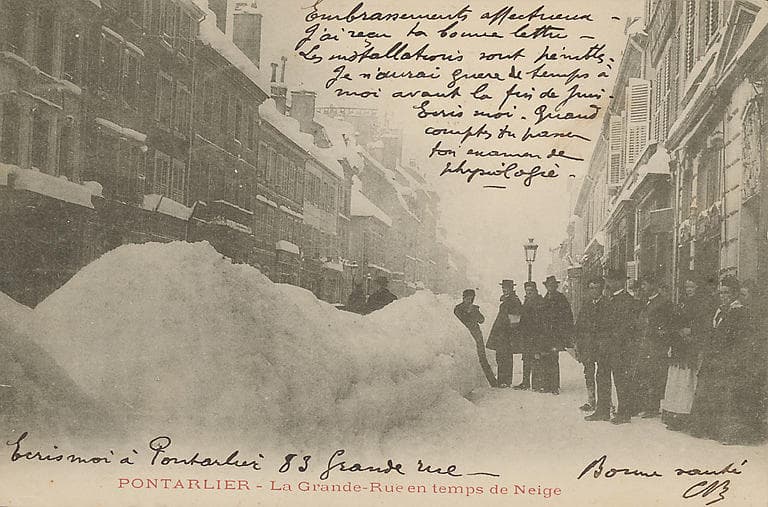 Embrassements affectueux -
J'ai reçu ta bonne lettre -
Les installations sont pénibles.
Je n'aurai guère de temps à
moi avant la fin de Juin.
Ecris moi. Quand
comptes tu passer
ton examen de
physiologie.
Ecris moi à Pontarlier 83 Grande rue -
Bonne santé
PONTARLIER - La Grande-Rue en temps de Neige